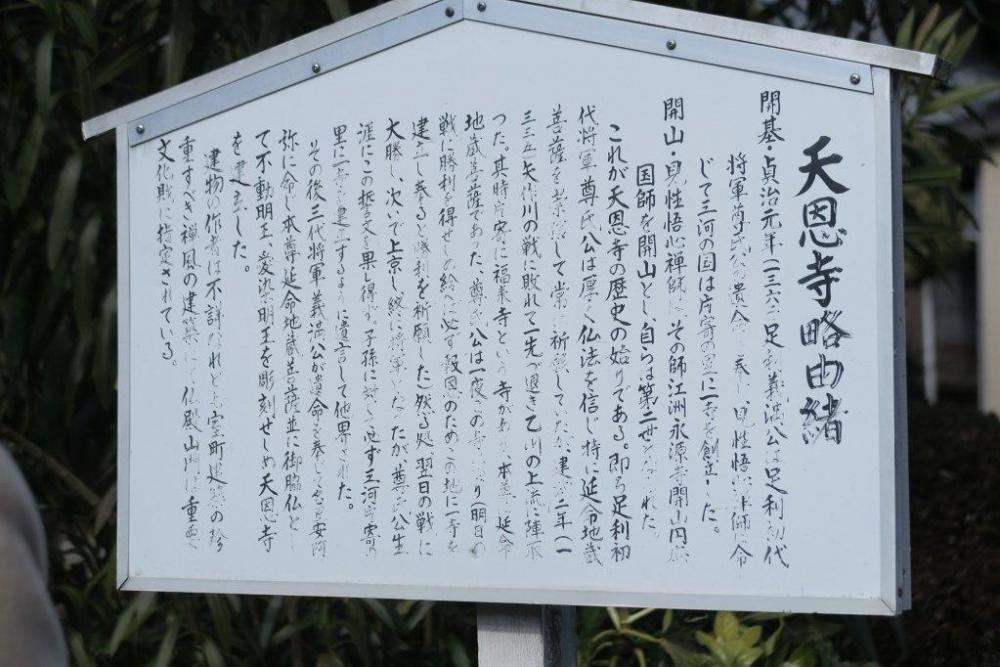 天恩寺略由緒
開基・貞治元年(一三六二)足利義満公は足利初代
将軍尊氏公の遺命を奉じ見性悟心禅師に命
じて三河の国は庁寄の里に一寺を創立した。
開山・見性悟心禅師は、その師江洲永源寺開山円応
国師を開山とし、自らは第二世となられた。
これが天恩寺の歴史の始りである。即ち足利初
代将軍尊氏公は厚く仏法を信じ特に延命地蔵
菩薩を崇 して常に祈 していたが、建 二年(一
三三五)矢作川の戦に敗れて一先づ退き乙川の上流に陣
った。其時庁寄に福来寺という寺があり、本尊は延命
地蔵菩薩であった、尊氏公は一夜この寺に り(明日の
戦に勝利を得せしめ給へば必ず報恩のためこの地に一寺を
建立し奉る)と勝利を祈願した、然る処、翌日の戦に
大勝し、次いで上京し終に将軍となったが、尊氏公生
涯にこの誓文を果し得ず、子孫に必ず三河庁寄の
里に一寺を建立するように遺言して他界された。
その後三代将軍義満公が遺命を奉じて 安阿
弥に命じ本尊延命地蔵菩薩並に御脇仏と
て不動明王、愛染明王を彫刻せしめ天恩寺
を建立した。
建物の作者は不詳なれども室町建築の珍
重すべき禅風の建築にて仏殿山門は重要
文化財に指定されている。